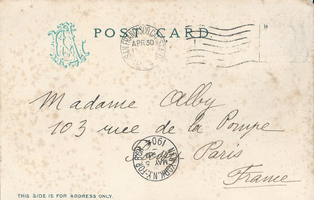 POST CARD.
APR 30
Madame Alby
103 rue de la Pompe
Paris
France
NEW YORK, N.Y. FOR.
MAY 5
1904
THIS SIDE IS FOR ADDRESS ONLY.